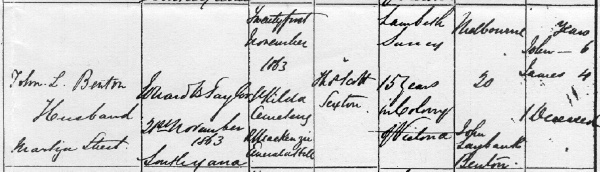 John L. Benton
Husband
Martyn Street
Edward B Taylor
21st November
1863
South Yarra
Twenty first
November
1863
St Kilda
Cemetery
Sexton
Lambeth
Surrey
15 Years
in Colony
of Victoria
Melbourne
20
John
Benton
Years
John — 6
James 4
1 Deceased